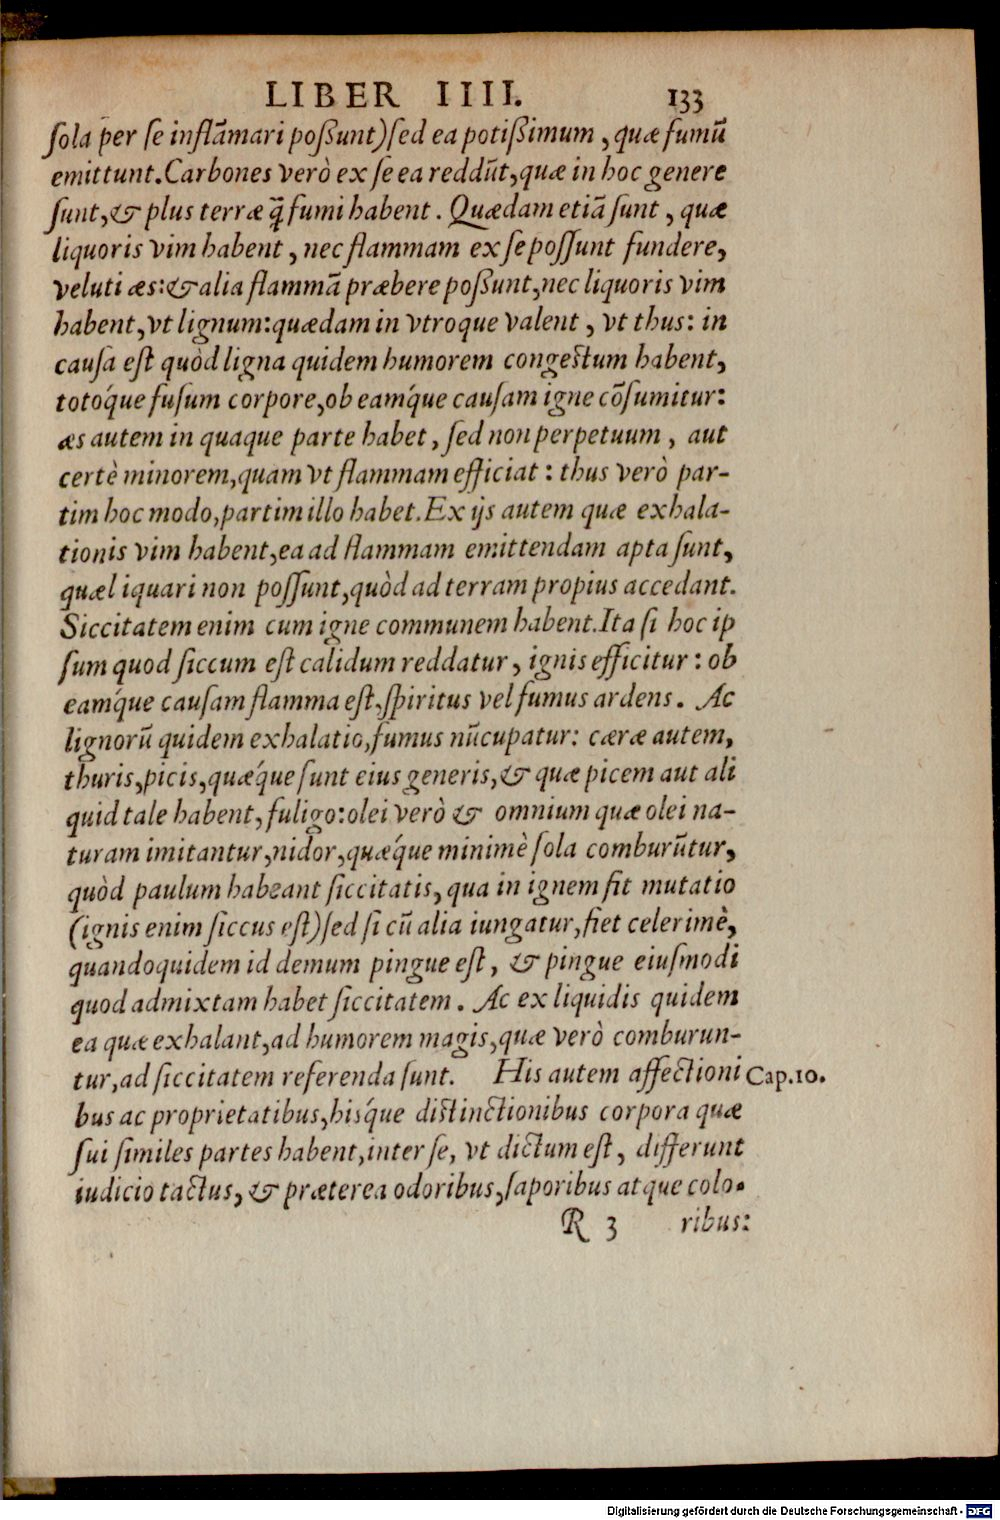 LIBER IIII. 133
ſola per ſe inflãmari poßunt)ſed ea potißimum, quæ fumũ
emittunt. Carbones verò ex ſe ea reddũt, quæ in hoc genere
ſunt, & plus terræ q̃ fumi habent. Quædam etiã ſunt, quæ
liquoris vim habent, nec flammam ex ſe poſſunt fundere,
veluti æs: & alia flammã præbere poßunt, nec liquoris vim
habent, vt lignum: quædam in vtroque valent, vt thus: in
cauſa eſt quòd ligna quidem humorem congeſtum habent,
totóque fuſum corpore, ob eamq́ue cauſam igne cõſumitur:
æs autem in quaque parte habet, ſed non perpetuum, aut
certè minorem, quam vt flammam efficiat: thus verò par-
tim hoc modo, partim illo habet. Ex ijs autem quæ exhala-
tionis vim habent, ea ad flammam emittendam apta ſunt,
quæ liquari non poſſunt, quòd ad terram propius accedant.
Siccitatem enim cum igne communem habent. Ita ſi hoc ip
ſum quod ſiccum eſt calidum reddatur, ignis efficitur: ob
eamq́ue cauſam flamma eſt, ſpiritus vel fumus ardens. Ac
lignorũ quidem exhalatio, fumus nũcupatur: cæræ autem,
thuris, picis, quæq́ue ſunt eius generis, & quæ picem aut ali
quid tale habent, fuligo: olei verò & omnium quæ olei na-
turam imitantur, nidor, quæq́ue minimè ſola comburũtur,
quòd paulum habeant ſiccitatis, qua in ignem fit mutatio
(ignis enim ſiccus eſt) ſed ſi cũ alia iungatur, fiet celerimè,
quandoquidem id demum pingue eſt, & pingue eiuſmodi
quod admixtam habet ſiccitatem. Ac ex liquidis quidem
ea quæ exhalant, ad humorem magis, quæ verò comburun-
tur, ad ſiccitatem referenda ſunt. His autem affectioni Cap.10.
bus ac proprietatibus, hisq́ue diſtinctionibus corpora quæ
ſui ſimiles partes habent, inter ſe, vt dictum eſt, differunt
iudicio tactus, & præterea odoribus, ſaporibus atque colo-
R 3 ribus:
Digitalisierung gefördert durch die Deutsche Forschungsgemeinschaft - DFG